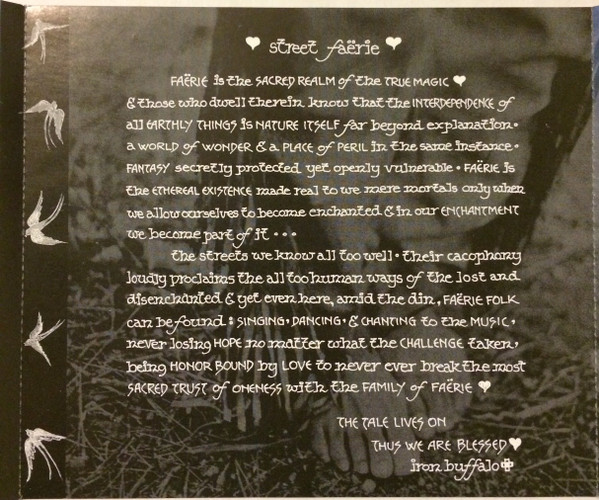 ♥ street faërie ♥
FAËRIE is the SACRED REALM of the TRUE MAGIC ♥
& those who dwell therein know that the INTERDEPENDENCE of
all EARTHLY THINGS is NATURE ITSELF far beyond explanation •
a WORLD of WONDER & a PLACE of PERIL in the same instance •
FANTASY secretly protected yet openly vulnerable • FAËRIE is
the ETHEREAL EXISTENCE made real to we mere mortals only when
we allow ourselves to become enchanted & in our ENCHANTMENT
we become part of it • • •
the streets we know all too well • their cacophony
loudly proclaims the all too human ways of the lost and
disenchanted & yet even here, amid the din, FAËRIE FOLK
can be found : SINGING, DANCING, & CHANTING to the MUSIC,
never losing HOPE no matter what the CHALLENGE taken,
being HONOR BOUND by LOVE to never ever break the most
SACRED TRUST of ONENESS with the FAMILY of FAËRIE ♥
THE TALE LIVES ON
THUS WE ARE BLESSED ♥
iron buffalo ✙